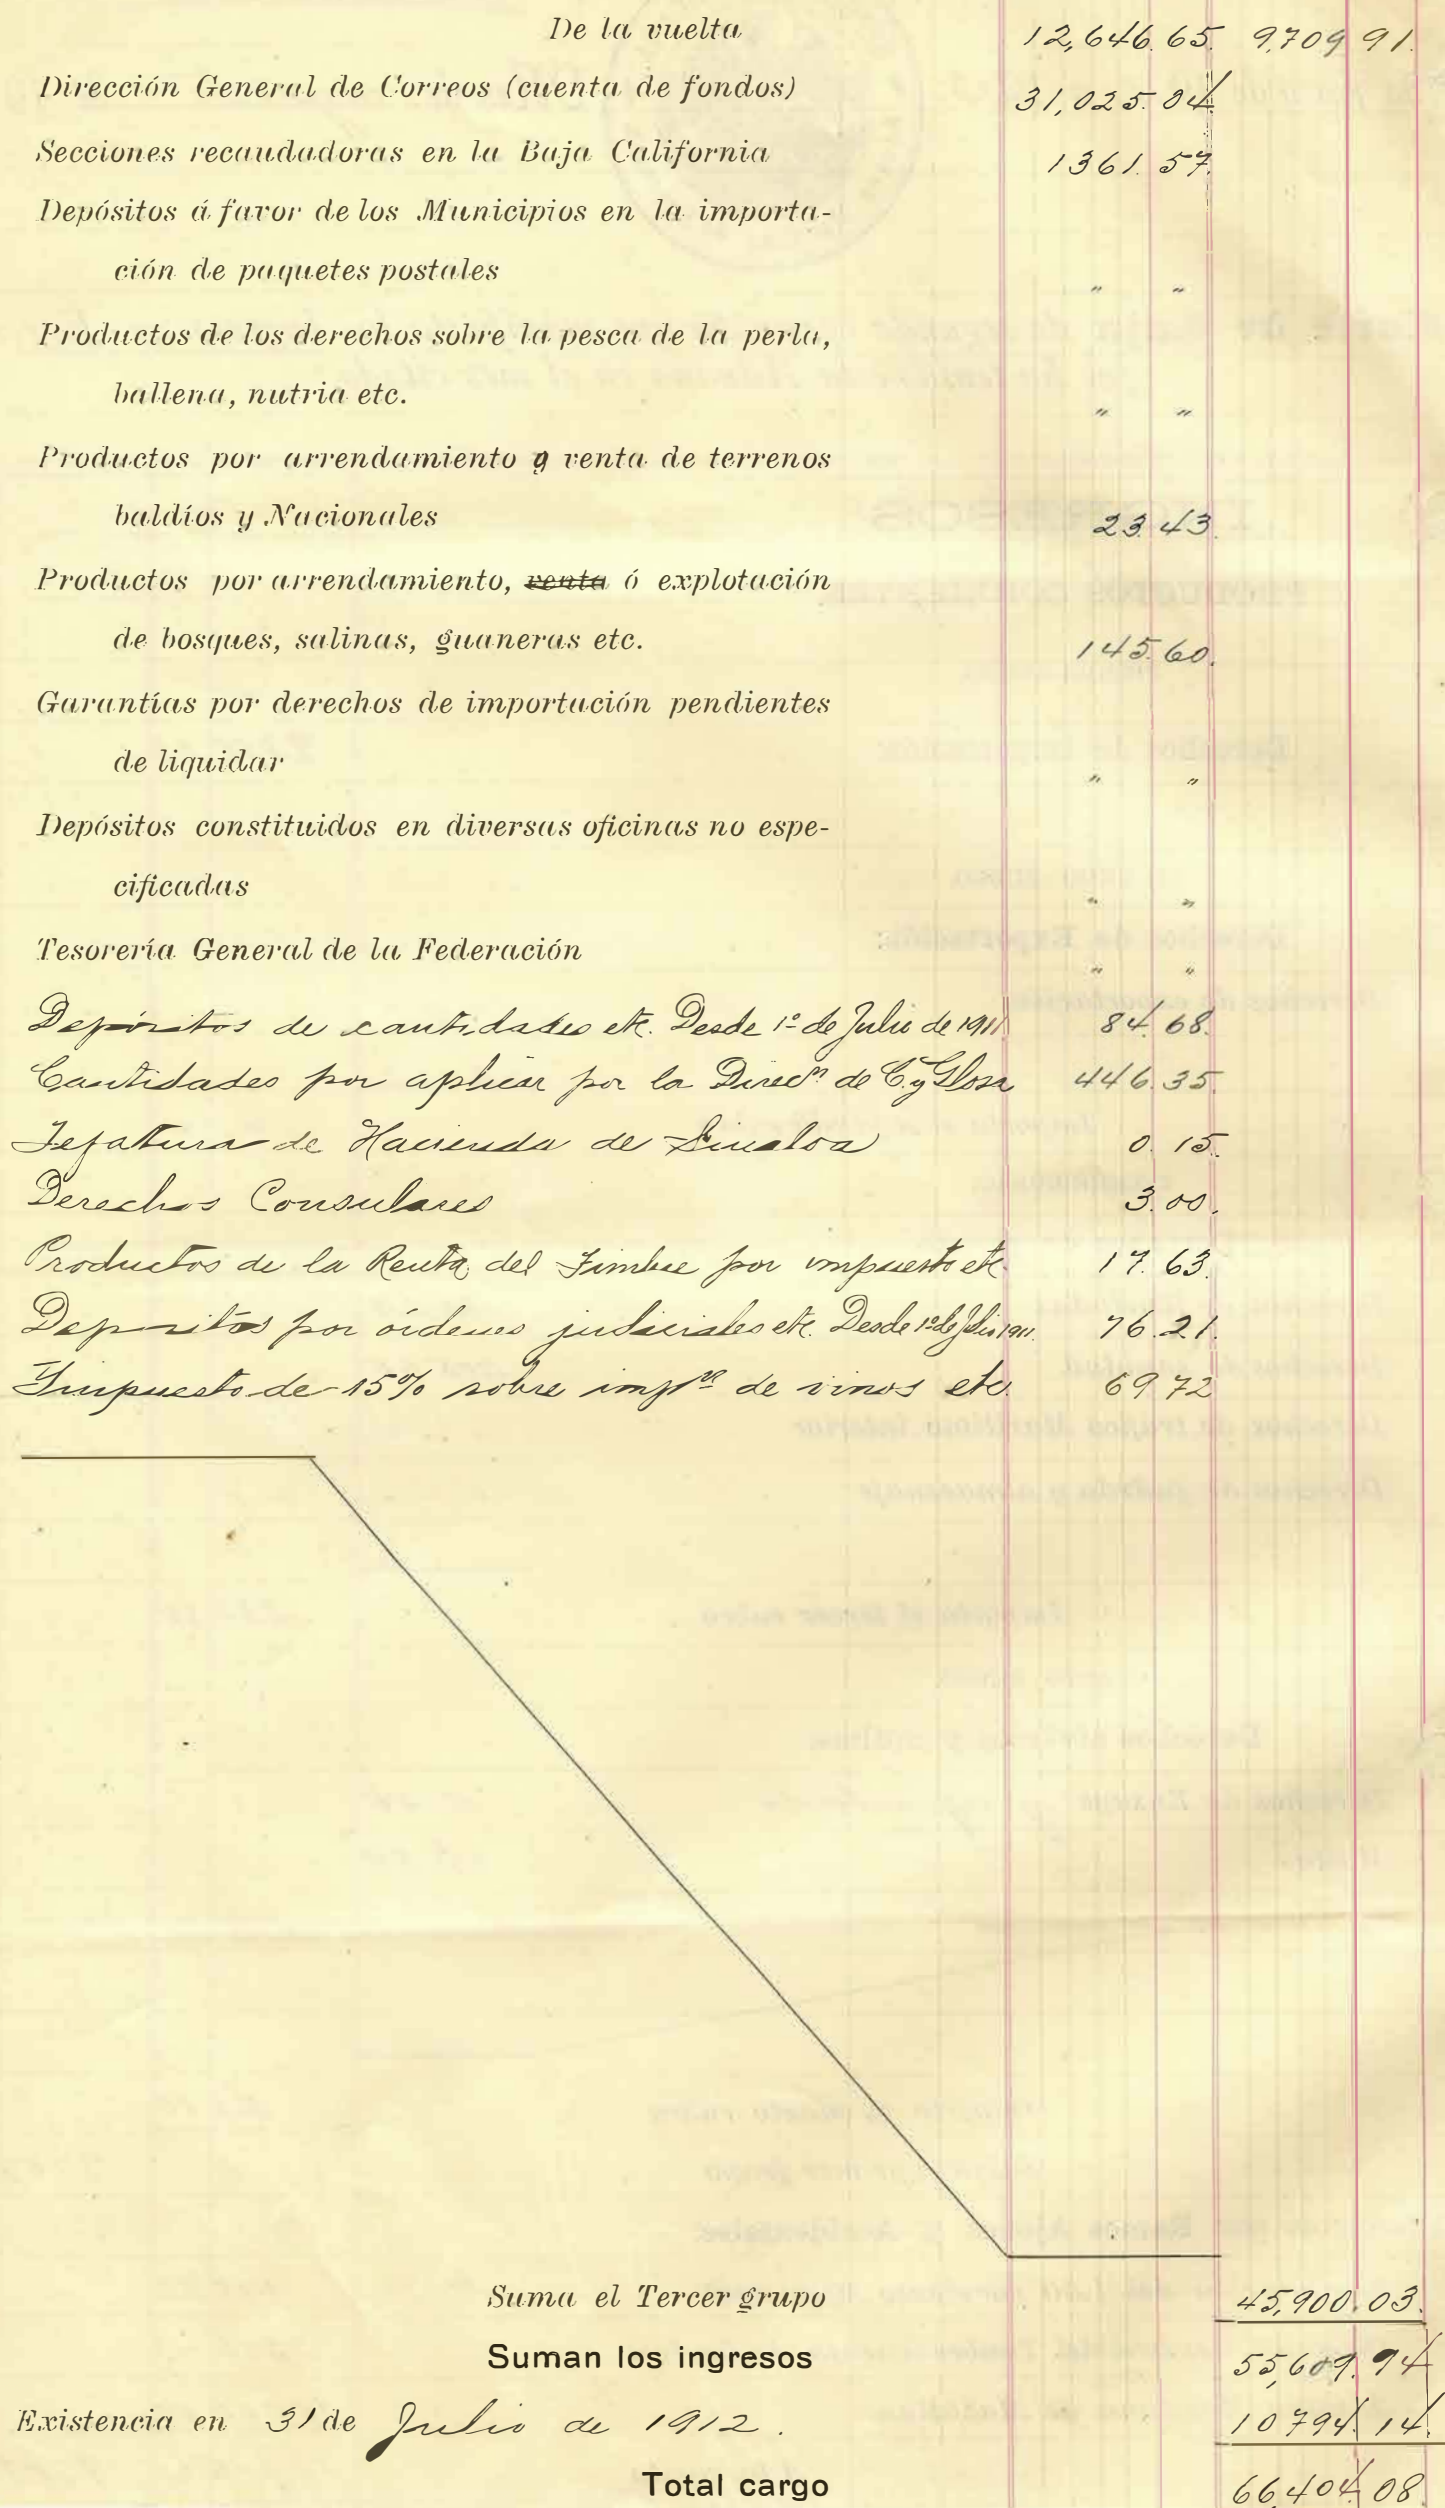 De la vuelta 12,646.65. 9,709 91.
Dirección General de Correos (cuenta de fondos) 31,025.04
Secciones recaudadoras en la Baja California 1361.57.
Depósitos á favor de los Municipios en la importa-
ción de paquetes postales " "
Productos de los derechos sobre la pesca de la perla,
ballena, nutria etc. " "
Productos por arrendamiento y venta de terrenos
baldíos y Nacionales 23.43.
Productos por arrendamiento, venta ó explotación
de bosques, salinas, guaneras etc. 145.60.
Garantías por derechos de importación pendientes
de liquidar " "
Depósitos constituidos en diversas oficinas no espe-
cificadas " "
Tesorería General de la Federación " "
Depósitos de cantidades etc. Desde 1º de Julio de 1911 84.68.
Cantidades por aplicar por la Direcn de C. y Glosa 446.35.
Jefatura de Hacienda de Sinaloa 0.15.
Derechos Consulares 3.00.
Productos de la Renta del Timbre por impuesto etc. 17.63.
Depositos por órdenes judiciales etc. Desde 1º de Julio 1911. 76.21.
Impuesto de 15% sobre impn de vinos etc. 69.72
Suma el Tercer grupo 45,900.03.
Suman los ingresos 55,609.94
Existencia en 31 de Julio de 1912. 10794.14.
Total cargo 66,404 08